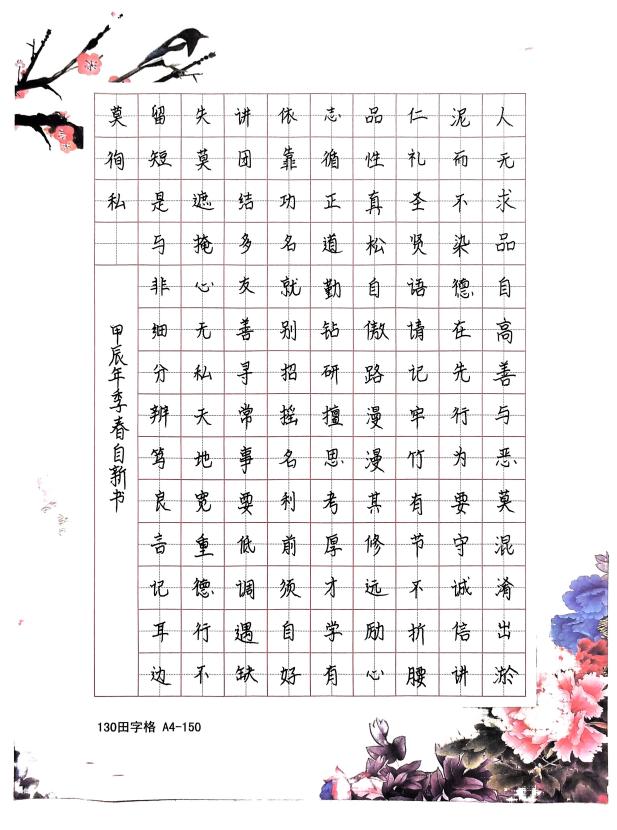 人无求品自高善与恶莫混淆出淤
泥而不染德在先行为要守诚信讲
仁礼圣贤语请记牢竹有节不折腰
品性真松自傲路漫漫其修远励心
志循正道勤钻研擅思考厚才学有
依靠功名就别招摇名利前须自好
讲团结多友善寻常事要低调遇缺
失莫遮掩心无私天地宽重德行不
留短是与非细分辨笃良言记耳边
莫徇私
甲辰年季春自新书
130田字格 A4-150